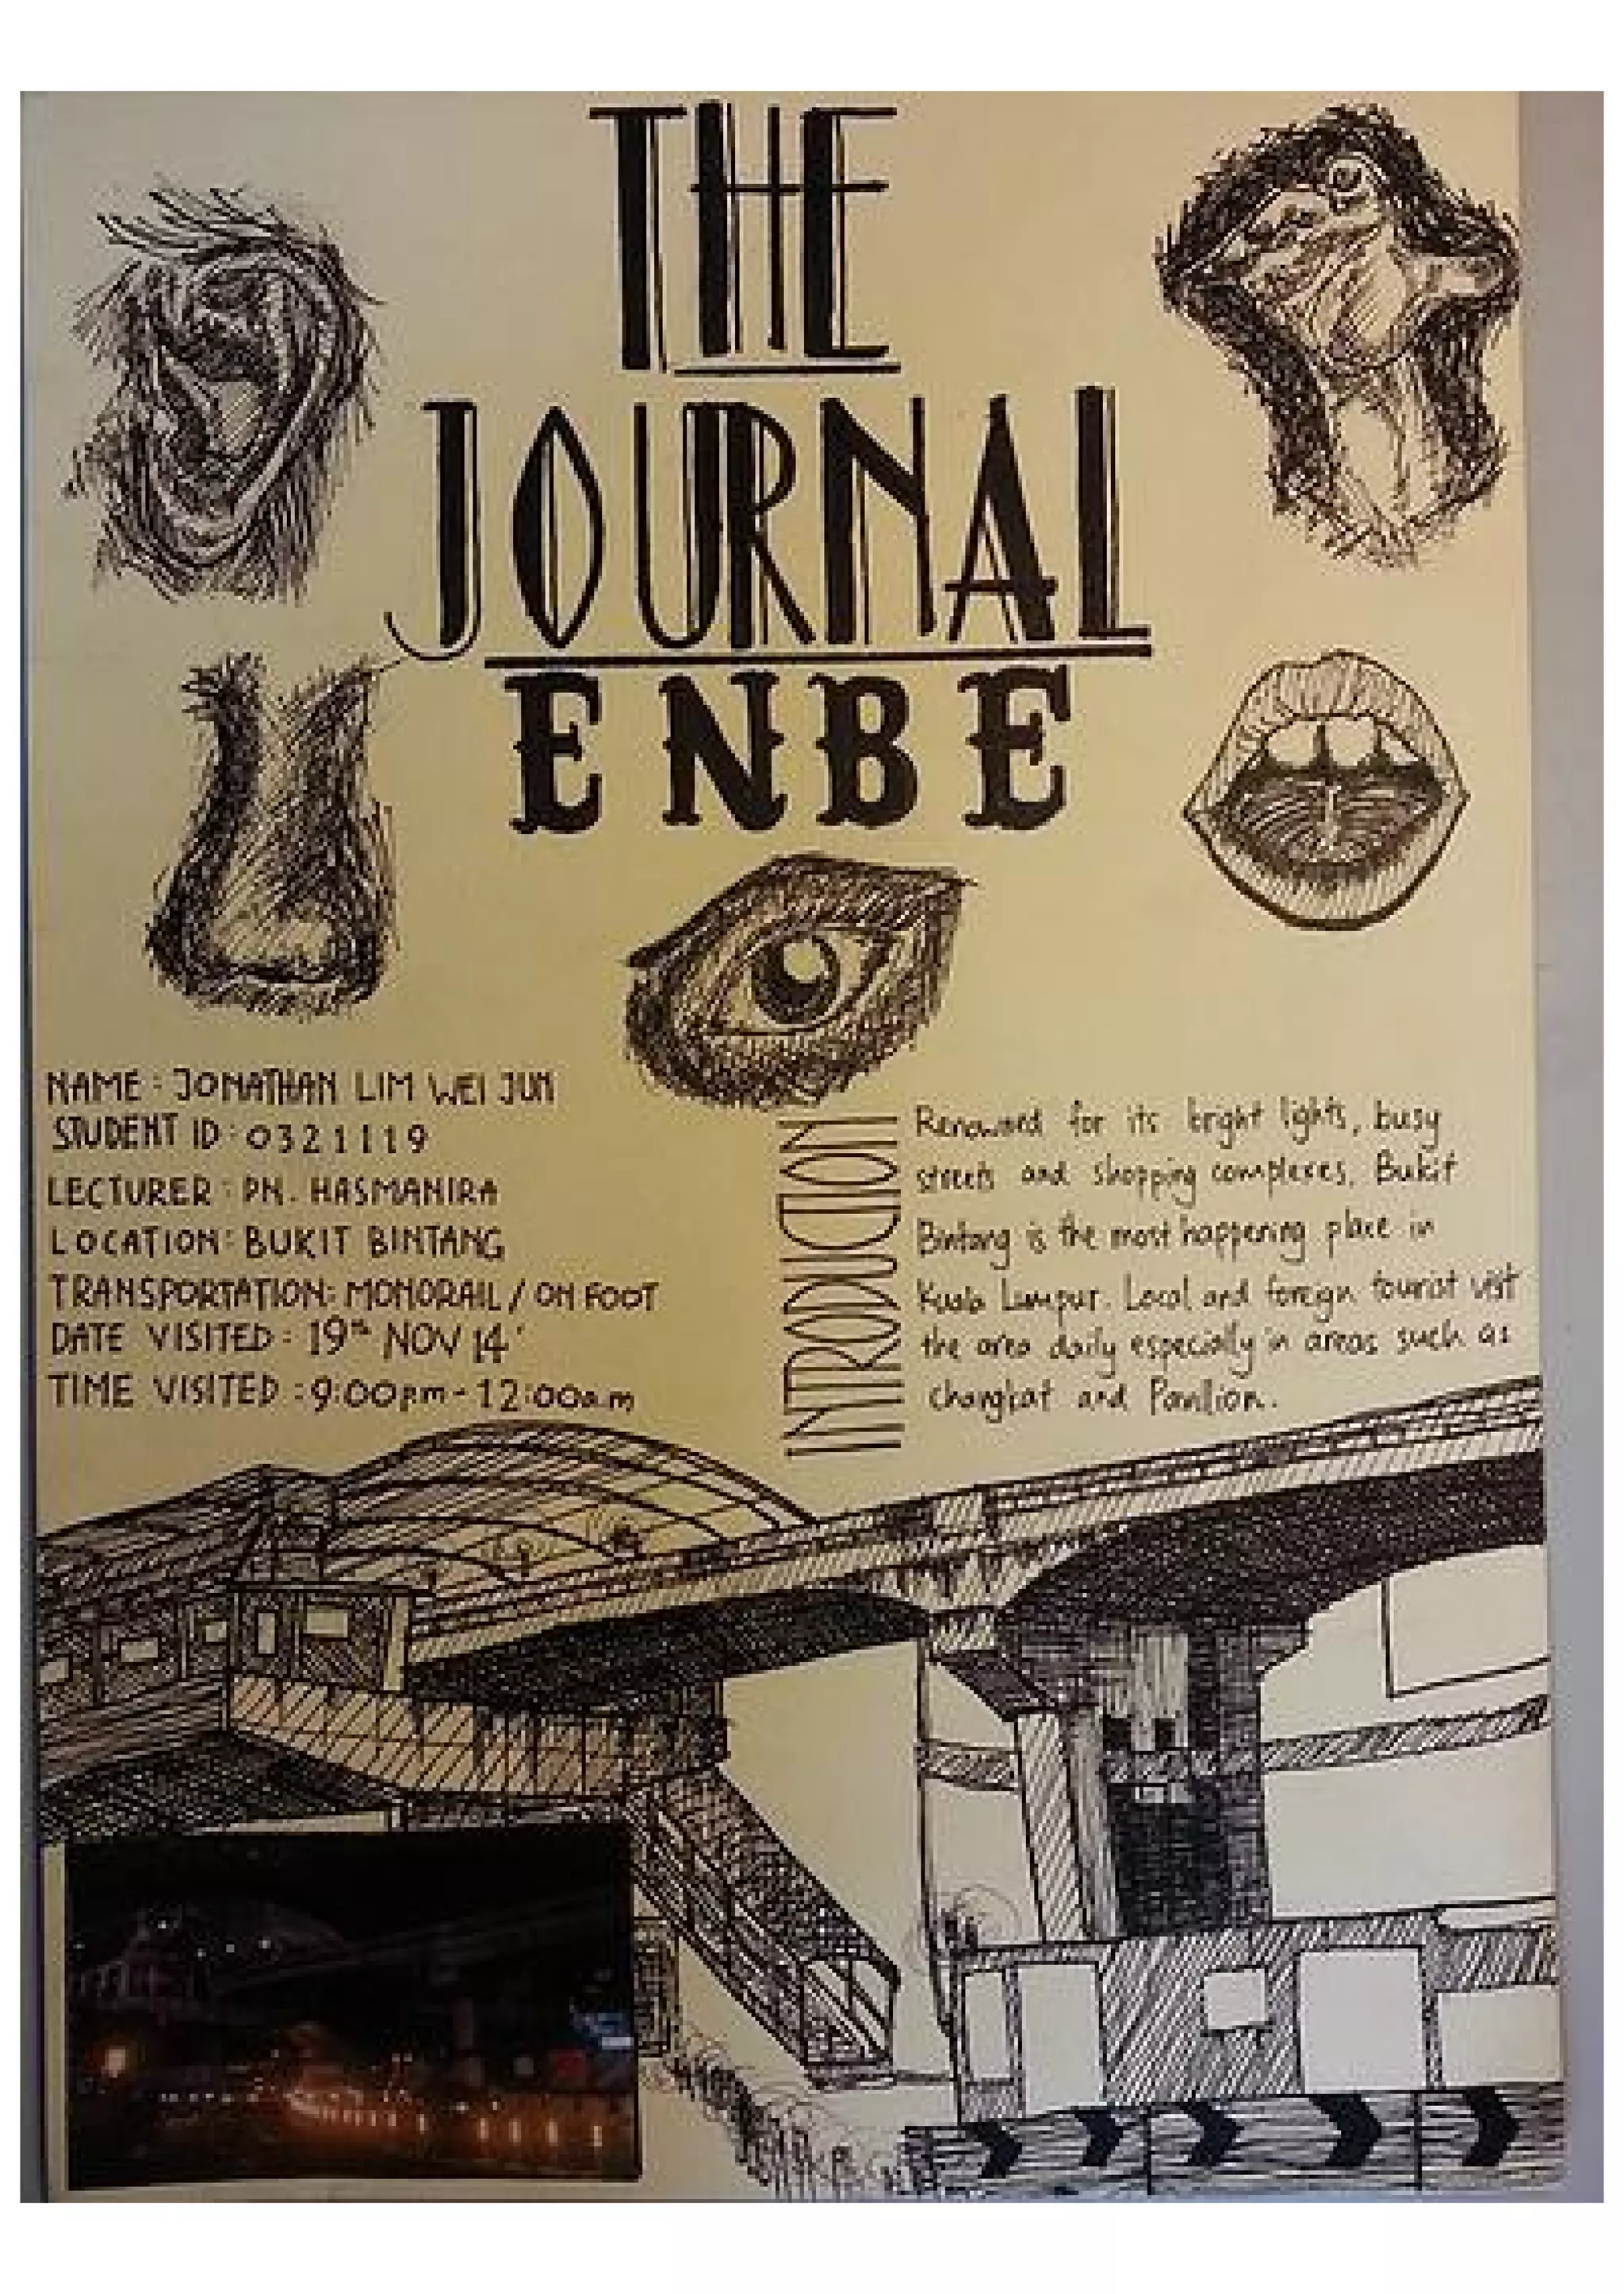 THE
JOURNAL
ENBE
NAME : JONATHAN LIM WEI JUN
STUDENT ID : 0321119
LECTURER : PN. HASMANIRA
LOCATION : BUKIT BINTANG
TRANSPORTATION: MONORAIL / ON FOOT
DATE VISITED : 19th NOV 14'
TIME VISITED : 9:00pm - 12:00a.m
INTRODUCTION
Renowned for its bright lights, busy
streets and shopping complexes, Bukit
Bintang is the most happening place in
Kuala Lumpur. Local and foreign tourist visit
the area daily especially in areas such as
Changkat and Pavilion.